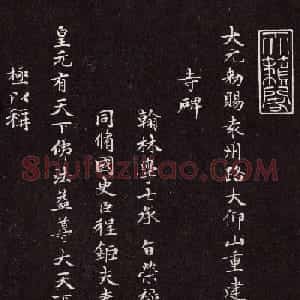 大元勑賜袁州路大仰山重建
寺碑
翰林學士承旨榮祿
同脩國史臣程鉅夫奉
皇元有天下佛法益尊大天
極以稱
shufazidao.com